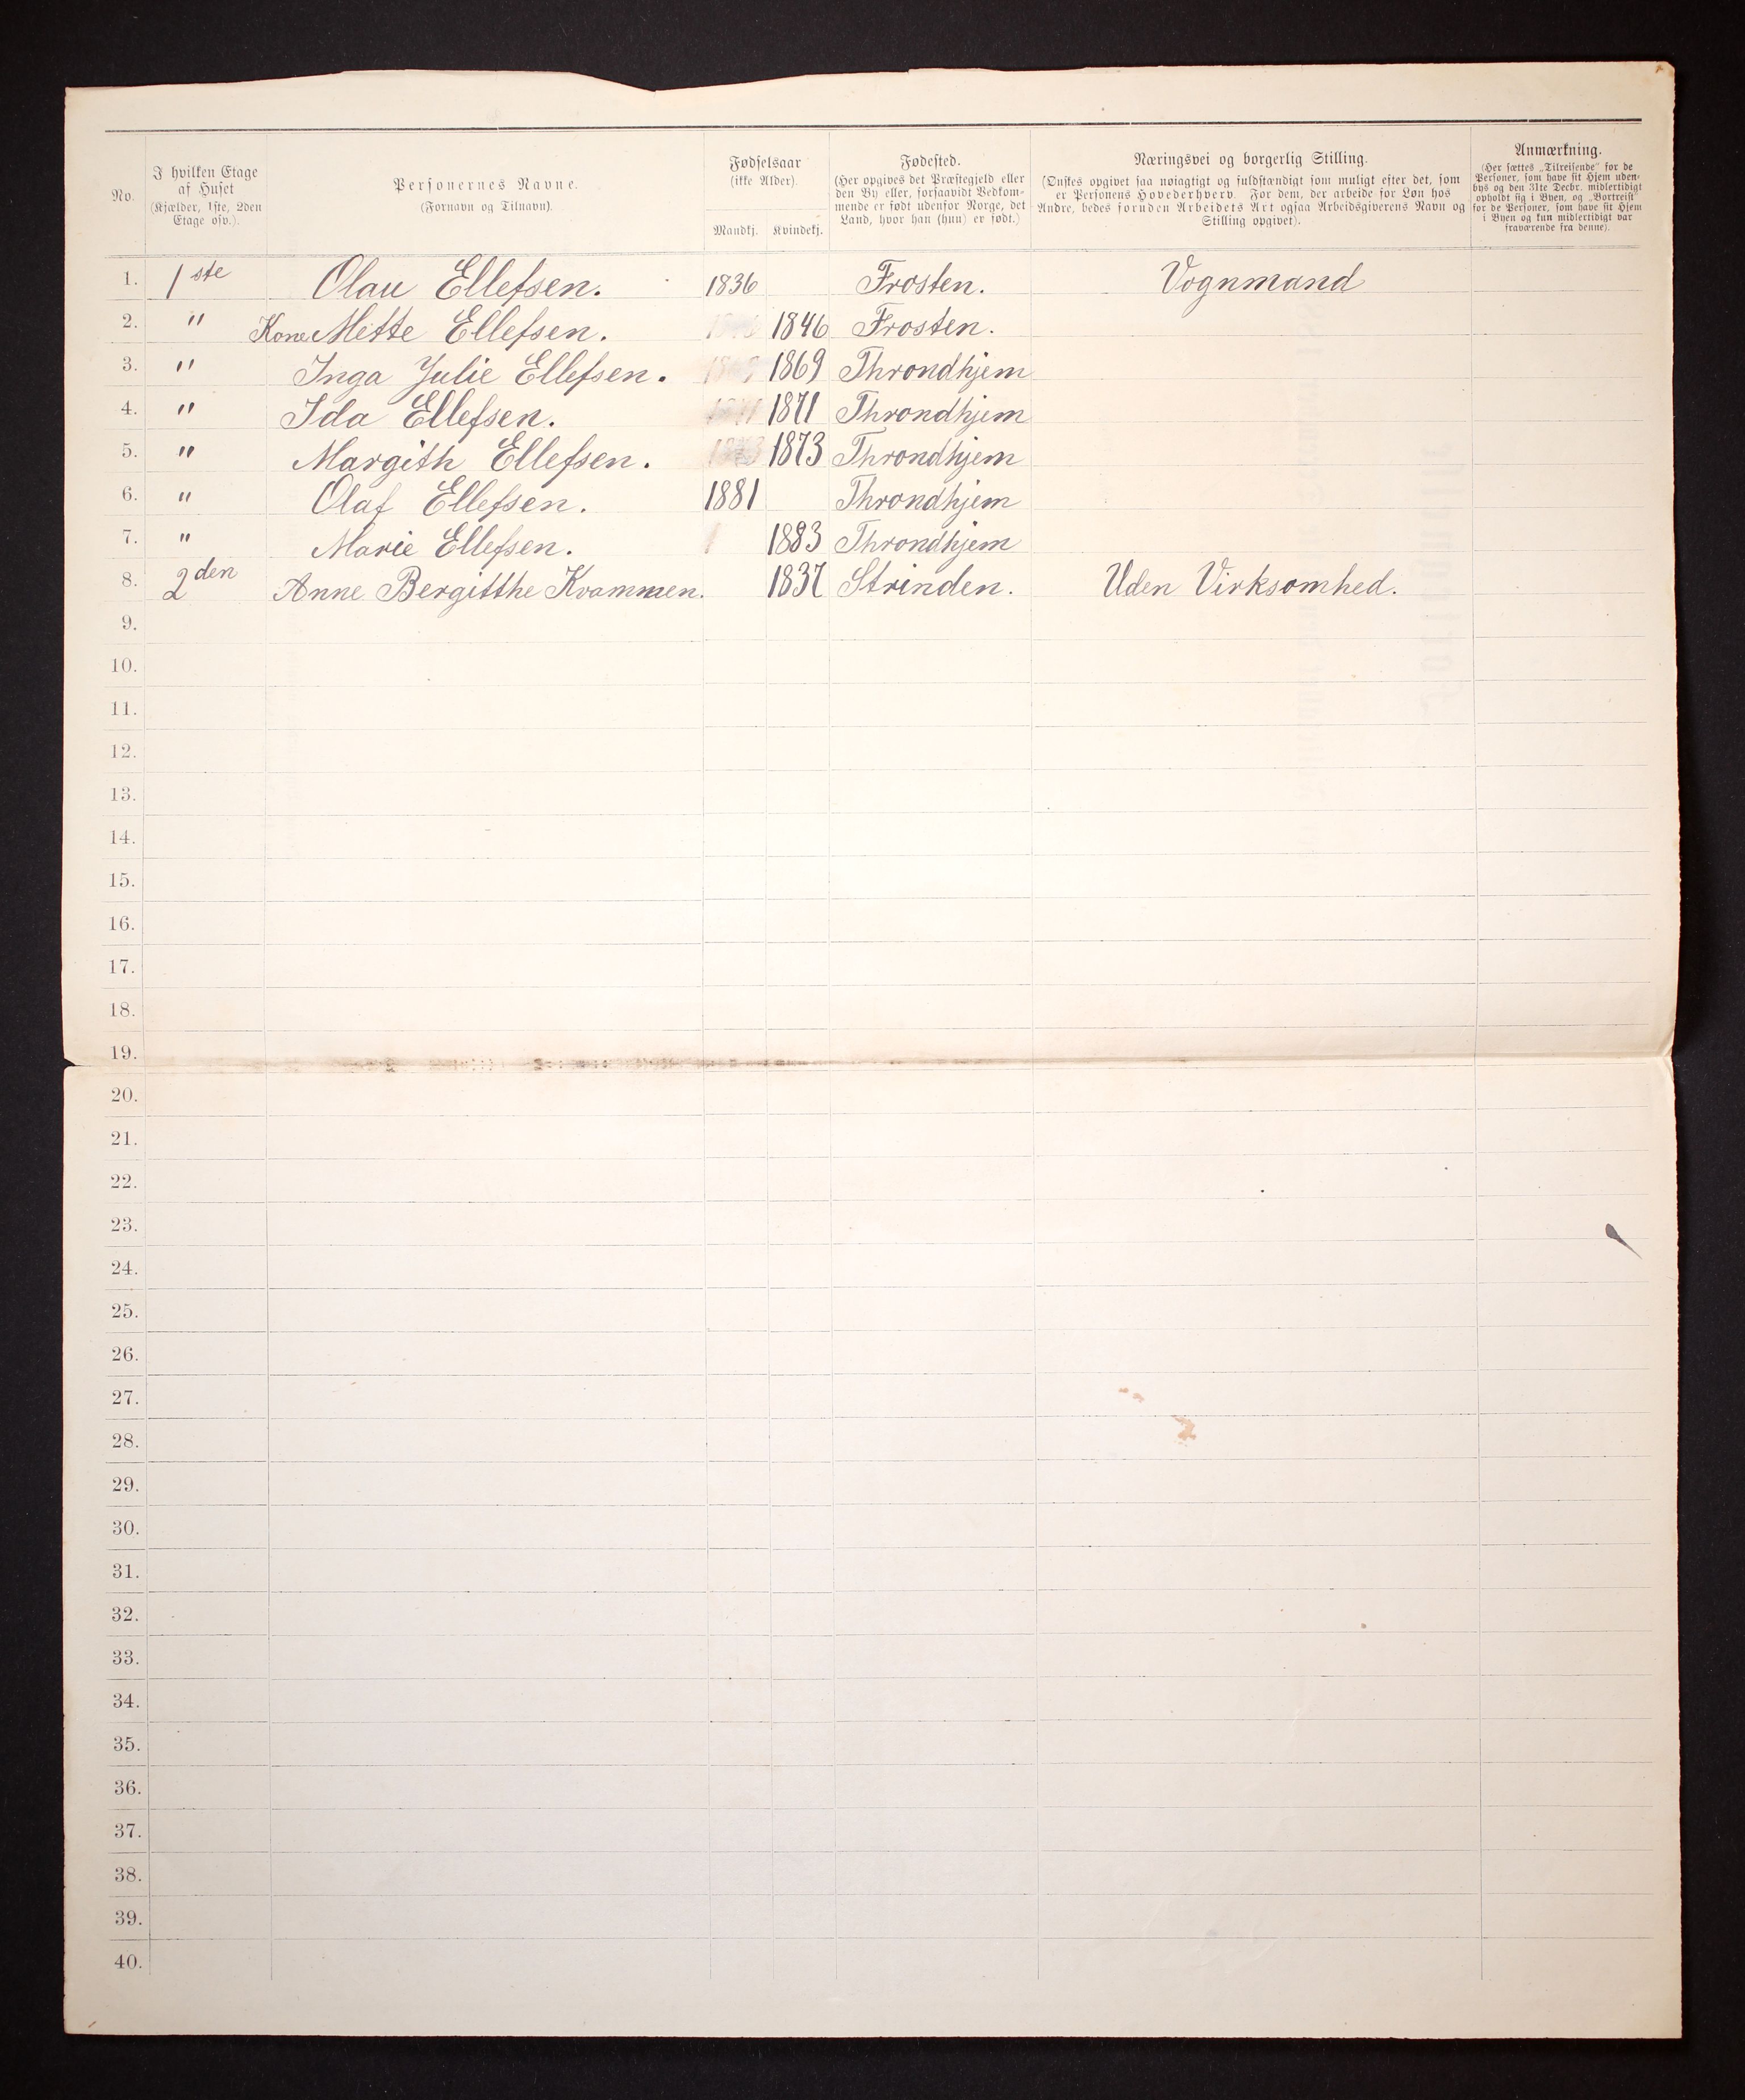 No.
I hvilken Etage
af Huset
(Kjælder, 1ste, 2den
Etage osv.).
Personernes Navne.
(Fornavn og Tilnavn).
Fødselsaar
(ikke Alder).
Mandkj. Kvindekj.
Fødested.
(Her opgives det Præstegjeld eller
den By eller, forsaavidt Vedkom-
mende er født udenfor Norge, det
Land, hvor han (hun) er født.)
Næringsvei og borgerlig Stilling.
(Ønskes opgivet saa nøiagtigt og fuldstændigt som muligt efter det, som
er Personens Hovederhverv. For dem, der arbeide for Løn hos
Andre, bedes foruden Arbeidets Art ogsaa Arbeidsgiverens Navn og
Stilling opgivet).
Anmærkning.
(Her sættes „Tilreisende" for de
Personer, som have sit Hjem uden-
bys og den 31te Decbr. midlertidigt
opholdt sig i Byen, og „Bortreist"
for de Personer, som have sit Hjem
i Byen og kun midlertidigt var
fraværende fra denne).
1. 1ste Olau Ellefsen. 1836 Frosten. Vognmand
2. " Kone Mette Ellefsen. 1846 Frosten.
3. " Inga Julie Ellefsen. 1869 Throndhjem
4. " Ida Ellefsen. 1871 Throndhjem
5. " Margith Ellefsen. 1873 Throndhjem
6. " Olaf Ellefsen. 1881 Throndhjem
7. " Marie Ellefsen. 1883 Throndhjem
8. 2den Anne Bergitthe Kvammen. 1837 Strinden. Uden Virksomhed.
9.
10.
11.
12.
13.
14.
15.
16.
17.
18.
19.
20.
21.
22.
23.
24.
25.
26.
27.
28.
29.
30.
31.
32.
33.
34.
35.
36.
37.
38.
39.
40.